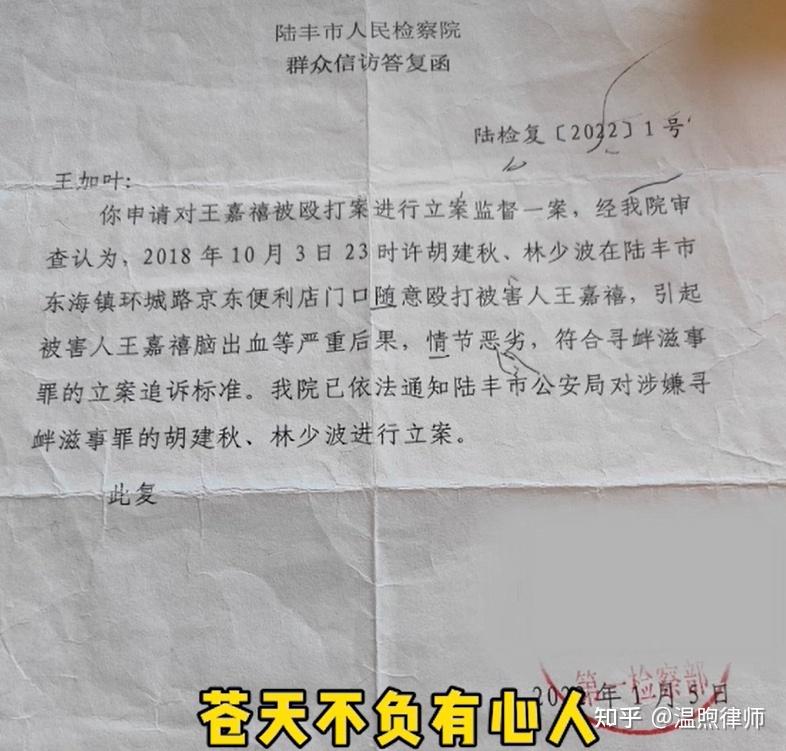 陆丰市人民检察院
群众信访答复函
陆检复〔2022〕1号
王加叶:
你申请对王嘉禧被殴打案进行立案监督一案，经我院审
查认为，2018年10月3日23时许胡建秋、林少波在陆丰市
东海镇环城路京东便利店门口随意殴打被害人王嘉禧，引起
被害人王嘉禧脑出血等严重后果，情节恶劣，符合寻衅滋事
罪的立案追诉标准。我院已依法通知陆丰市公安局对涉嫌寻
衅滋事罪的胡建秋、林少波进行立案。
此复
第一检察部
2022年1月5日
苍天不负有心人
知乎 @温煦律师